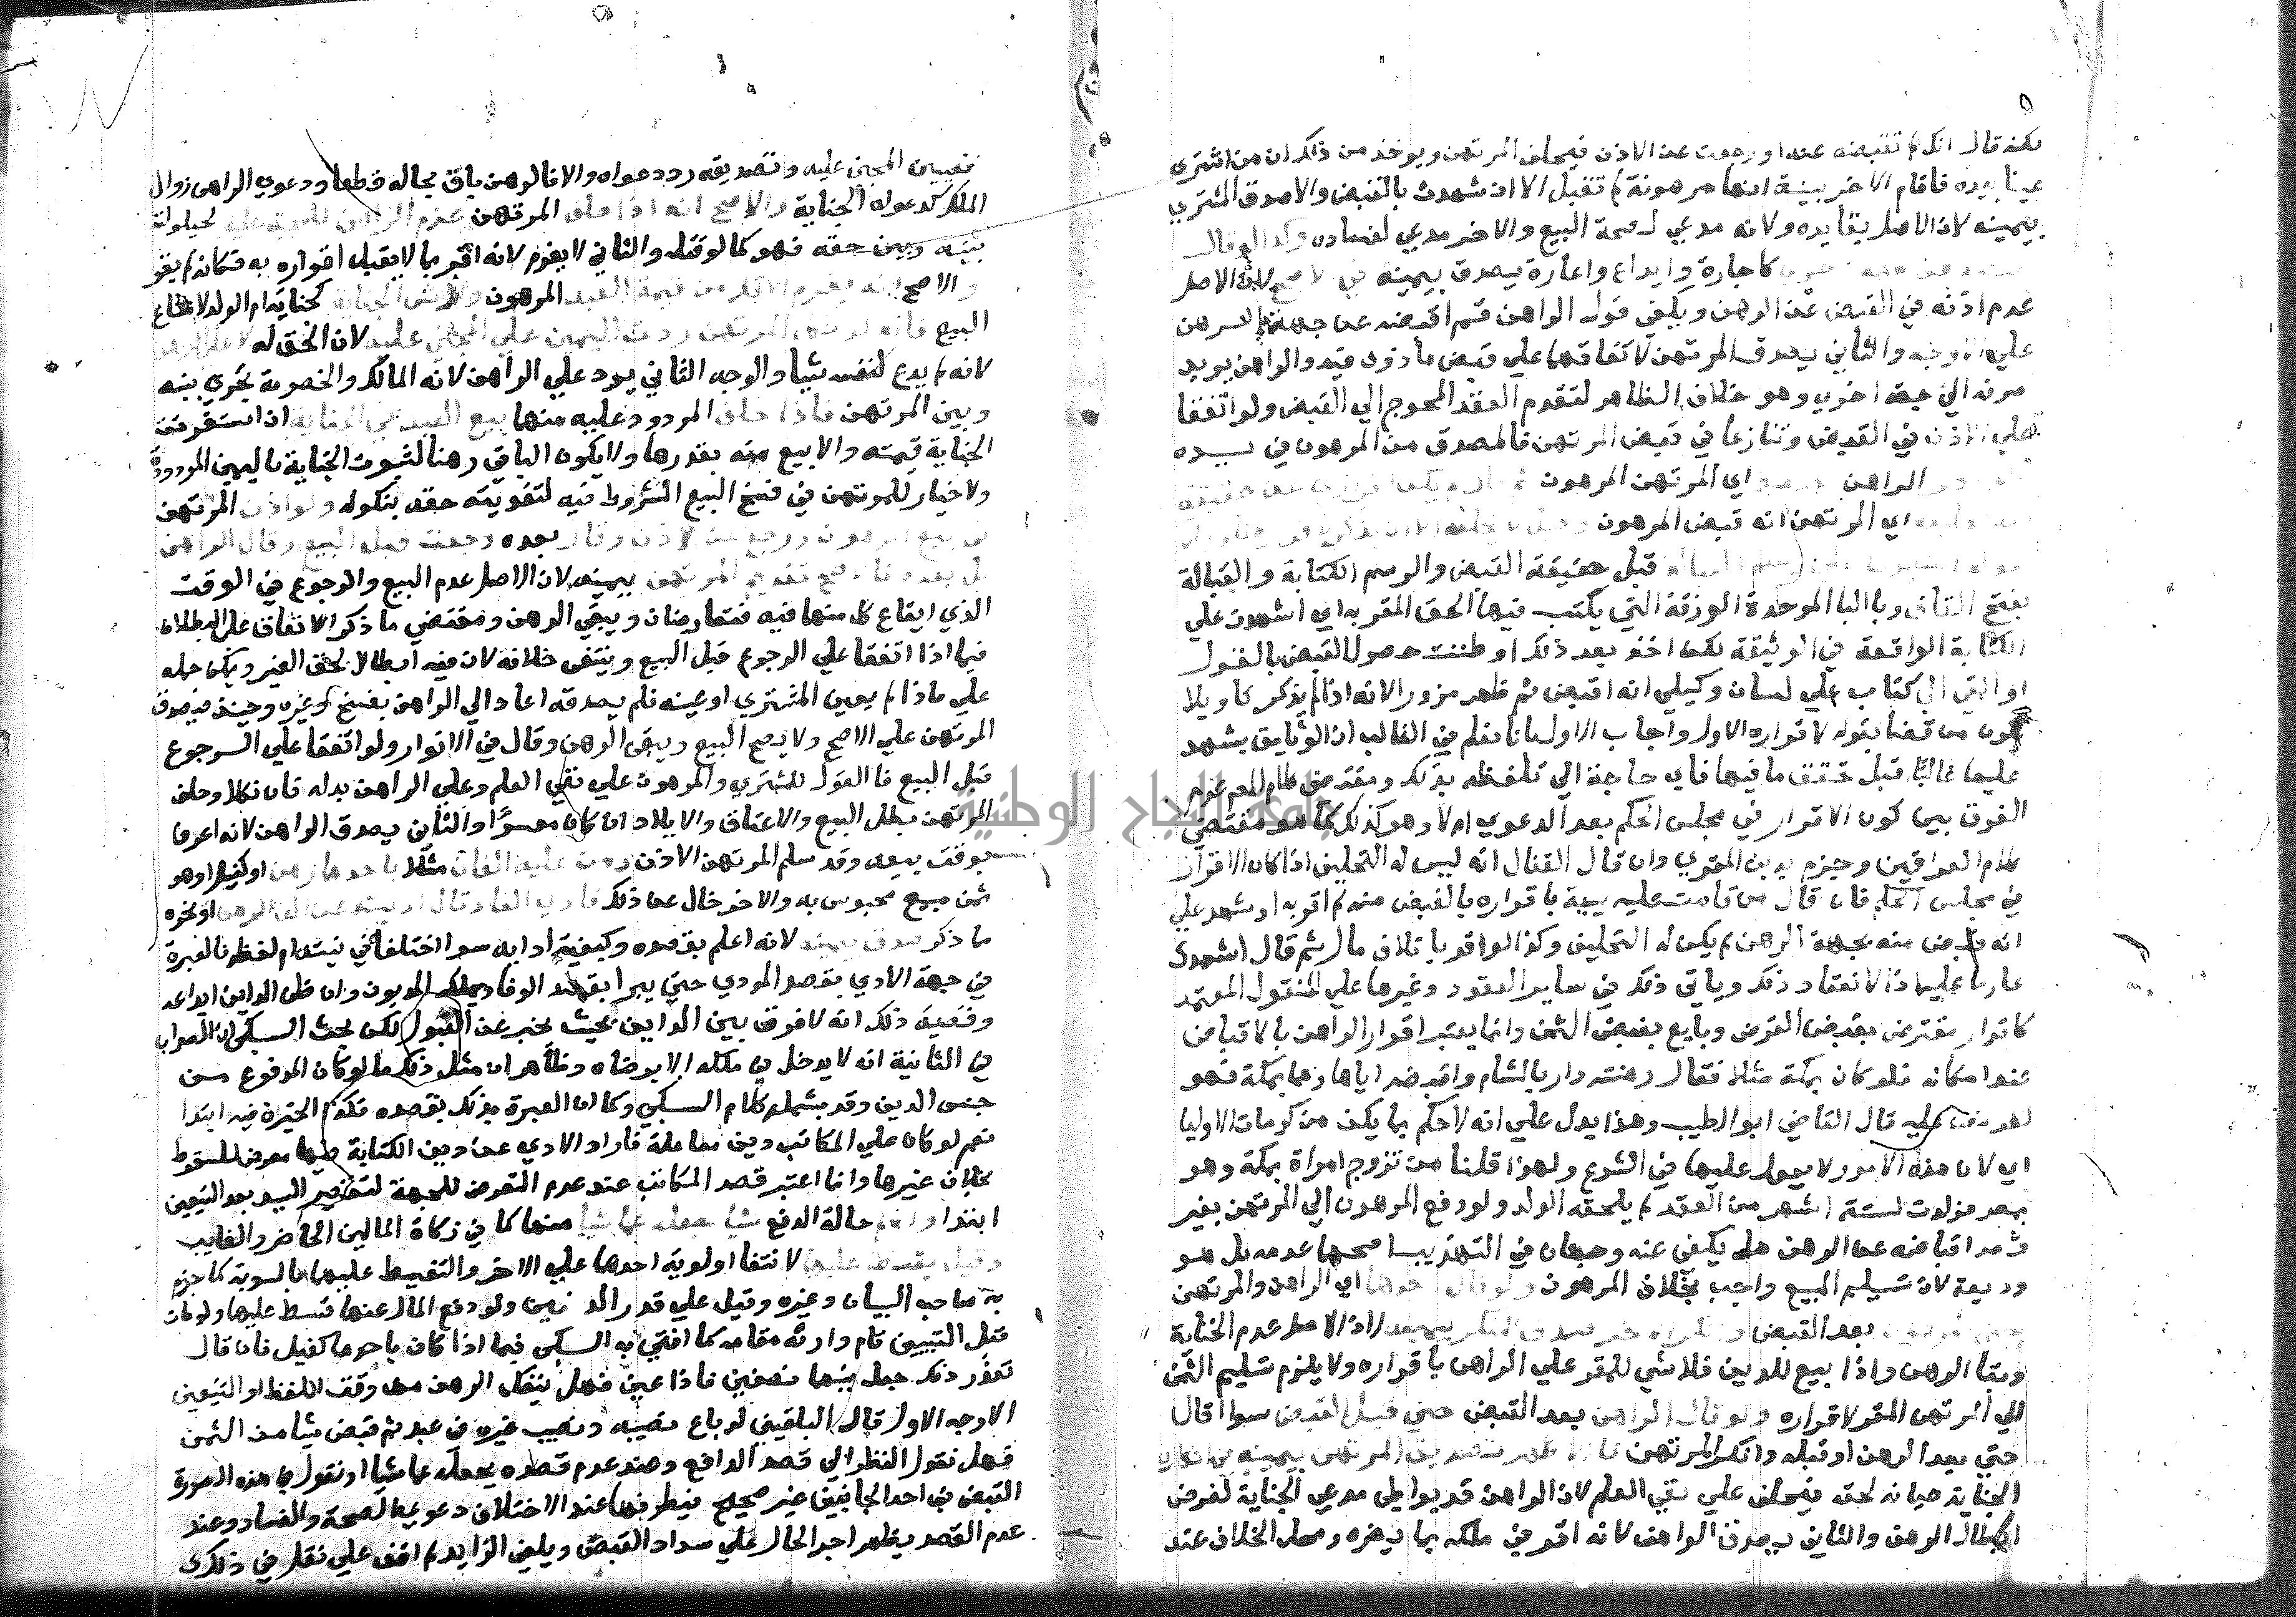 لكنه قال انك لم تقبضه عنه او رجعت عن الاذن فيحلف المرتهن ويوخذ من ذلك ان من اشترى
عينا بيده فاقام الاخر بينة انها مرهونة لم تقبل الا ان شهدت بالقبض والا صدق المشتري
بيمينه لان الاصل بقا يده ولانه مدعي لصحة البيع والاخر مدعي لفساده وكذا لو قال
اخرى كاجارة وايداع واعارة يصدق بيمينه في الاصح لان الاصل
عدم اذنه في القبض عن الرهن ويكفي قول الراهن لم اقبضه عن جهة الرهن
علي الاوجه والثاني يصدق المرتهن لاتفاقهما علي قبض ماذون فيه والراهن يريد
صرفه الي جهة اخرى وهو خلاف الظاهر لتقدم العقد المحوج الي القبض ولو اتفقا
علي الاذن في القبض وتنازعا في قبض المرتهن فالمصدق من المرهون في يده
الراهن اي المرتهن المرهون
اي المرتهن انه قبض المرهون
قبل حقيقة القبض والرسم الكتابة والقبالة
بفتح القاف وبالبا الموحدة الورقة التي يكتب فيها الحق المقر به اي اشهدت علي
الكتابة الواقعة في الوثيقة لكي اخذ بعد ذلك او ظننت حصول القبض بالقول
او القي الي كتاب علي لسان وكيلي انه اقبض ثم ظهر مزورا لانه اذا لم يذكر تاويلا
يكون مناقضا بقوله لاقراره الاول واجاب الاول بانا نعلم في الغالب ان الوثايق يشهد
عليها غالبا قبل تحقق ما فيها فاي حاجة الي تلفظه بذلك ومقتضى كلام المص عدم
الفرق بين كون الاقرار في مجلس الحكم بعد الدعوي ام لا وهو كذلك كما هو مقتضى
كلام العراقيين وجزم به بن المقري وان قال القفال انه ليس له التحليف اذا كان الاقرار
في مجلس الحكم فان قال من قامت عليه بينة باقراره بالقبض منه لم اقر به او شهد علي
انه قبض منه بجهة الرهن لم يكن له التحليف وكذا لو اقر باتلاف مال ثم قال اشهدت
عازما عليه اذ لا نعتاد ذلك وياتي ذلك في ساير العقود وغيرها علي المنقول المعتمد
كاقرار مقترض بقبض القرض وبايع بقبض الثمن وانما يعتبر اقرار الراهن بالاقباض
عند امكانه فلو كان بمكة مثلا فقال رهنته داري بالشام واقبضه اياها وهما بمكة فهو
لغو نص عليه قال القاضي ابو الطيب وهذا يدل علي انه لا حكم بما يمكن من كرامات الاوليا
اي لان هذه الامور لا يعول عليها في الشرع ولهذا قلنا من تزوج امراة بمكة وهو
بمصر فولدت لستة اشهر من العقد لم يلحقه الولد ولو دفع المرهون الي المرتهن بغير
قصد اقباضه عن الرهن هل يكفي عنه وجهان في التهذيب اصحهما عدمه بل هو
وديعة لان تسليم المبيع واجب بخلاف المرهون ولو قال احدهما اي الراهن والمرتهن
جني المرهون بعد القبض وانكر الاخر صدق المنكر بيمينه اذ الاصل عدم الجناية
وبقا الرهن واذا بيع للدين فلا شي للمقر علي الراهن باقراره ولا يلزم تسليم الثمن
الي المرتهن المقر لاقراره ولو قال الراهن بعد القبض جني قبل القبض سوا اقال
جني بعد الرهن او قبله وانكر المرتهن فالاظهر تصديق المرتهن بيمينه في انكاره
الجناية صيانة لحقه فيحلف علي نفي العلم لان الراهن قد يواطي مدعي الجناية لغرض
ابطال الرهن والثاني يصدق الراهن لانه اقر في ملكه بما يضره ومحل الخلاف عند
تعيين المجني عليه وتصديقه ودعواه والا فالرهن باق بحاله قطعا ودعوي الراهن زوال
الملك كدعواه الجناية والاصح انه اذا حلف المرتهن غرم الراهن للمجني عليه لحيلولته
بينه وبين حقه فهو كما لو قتله والثاني لا يغرم لانه اقر بما لا يقبل اقراره به فكانه لم يقر
والاصح انه يغرم الاقل من قيمة العبد المرهون وارش الجناية كجناية ام الولد لامتناع
البيع فانه لو نكل المرتهن ردت اليمين علي المجني عليه لان الحق له لا علي الراهن
لانه لم يدع لنفسه شيا والوجه الثاني يرد علي الراهن لانه المالك والخصومة تجري بينه
وبين المرتهن فاذا حلف المردود عليه منهما بيع العبد في الجناية ان استغرقت
الجناية قيمته والا بيع منه بقدرها ولا يكون الباقي رهنا لثبوت الجناية باليمين المردودة
ولا خيار للمرتهن في فسخ البيع المشروط فيه لتفويته حقه بنكوله ولو اذن المرتهن
في بيع المرهون ورجع عن الاذن وقال بعده رجعت قبل البيع وقال الراهن
بل بعده فالاصح تصديق المرتهن بيمينه لان الاصل عدم البيع والرجوع في الوقت
الذي ايقاع كل منهما فيه فتعارضان ويبقي الرهن ومقتضي ما ذكر الاتفاق علي البطلان
فيما اذا اتفقا علي الرجوع قبل البيع وينتفي خلافه لان فيه ابطالا لحق الغير ويمكن حمله
علي ما اذا لم يعين المشتري او عينه فلم يصدقه اعاد الي الراهن بفسخ او غيره وحينئذ فيصدق
المرتهن علي الاصح ولا يصح البيع ويبقي الرهن وقال في الانوار ولو اتفقا علي الرجوع
قبل البيع فالقول للمشتري والمرهون علي نفي العلم وعلي الراهن بدله فان نكلا وحلف
المرتهن بطل البيع والاعتاق والايلاد ان كان معسرا والثاني يصدق الراهن لانه اعرف
بوقت بيعه وقد سلم المرتهن الاذن ومن عليه الفان مثلا باحدهما رهن او كفيل او هو
ثمن مبيع محبوس به والاخر خال عن ذلك فادي الفا وقال اديته عن الف الرهن او نحوه
ما ذكر صدق بيمينه لانه اعلم بقصده وكيفية ادايه سوا اختلفا في نيته ام لفظه فالعبرة
في جهة الادي بقصد المودي حتي يبرا بقصد الوفا ويملكه المديون وان ظن الداين ايداعه
وقضية ذلك انه لا فرق بين الداين بحيث يخبر عن القبول لكن بحث السبكي ان الصواب
في الثانية انه لا يدخل في ملكه الا برضاه وظاهر ان مثل ذلك ما لو كان المدفوع من
جنس الدين وقد يشمله كلام السبكي وكما ان العبرة بذلك بقصده فتكون الخيرة فيه ابتدا
نعم لو كان علي المكاتب دين معاملة فاراد الادي عن دين الكتابة معرض للسقوط
بخلاف غيرها وانما اعتبر قصد المكاتب عند عدم التعرض للجهة لتقصير السيد بعد التعيين
ابتدا وان لم حالة الدفع شيا جعله عما شا منهما كما في زكاة المالين الحاضر والغايب
وقيل يقسط عليهما لانتفا اولوية احدهما علي الاخر والتقسيط عليهما بالسوية كما جزم
به صاحب البيان وغيره وقيل علي قدر الدينين ولو دفع المال عنهما قسط عليهما ولو مات
قبل التبيين قام وارثه مقامه كما افتي به السبكي فيما اذا كان باحدهما كفيل فان قال
تعذر ذلك جعل بينهما نصفين فاذا عين فهل ينفك الرهن من وقت اللفظ او التعيين
الاوجه الاول قال البلقيني لو باع نصيبه ونصيب غيره في عبد ثم قبض شيا من الثمن
فهل نقول النظر الي قصد الدافع وعند عدم قصده يجعله عما شا او نقول في هذه الصورة
القبض في احد الجانبين غير صحيح فينظر فيها عند الاختلاف دعوي الصحة والفساد وعند
عدم القصد يظهر اجر الحال علي سداد القبض ويلغي الزايد لم اقف علي نقل في ذلك
جامعة النجاح الوطنية